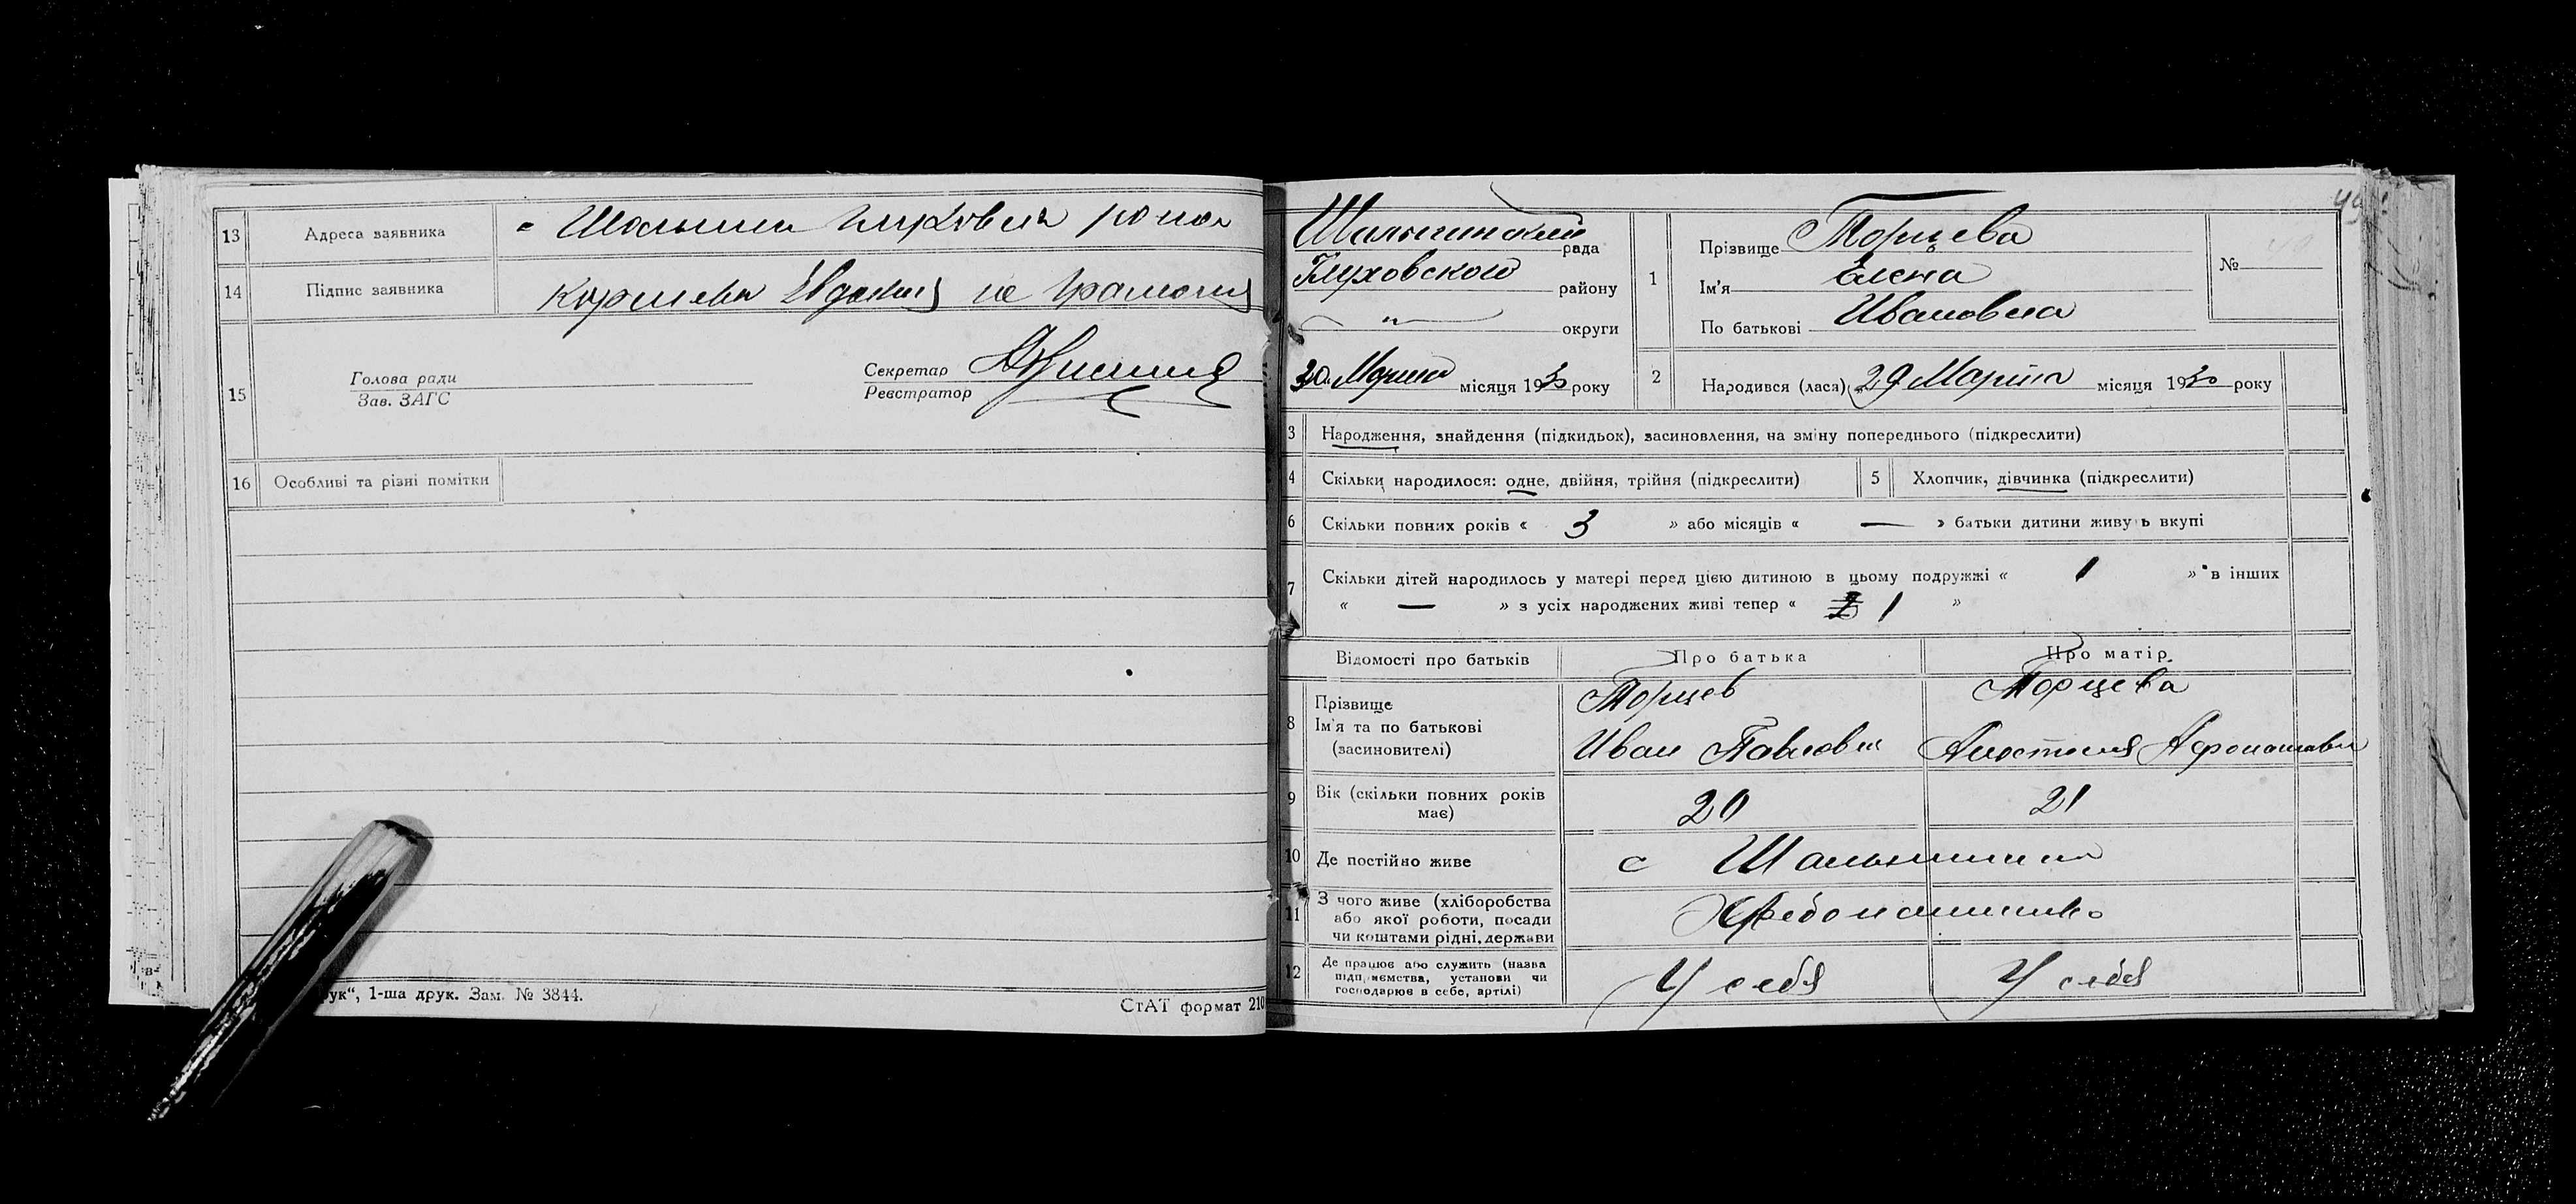 13 Адреса заявника с Шалыгина Глуховск района
14 Підпис заявника Евдокия не грамотная
15 Голова ради
Зав. ЗАГС
Секретар
Реєстратор
16 Особливі та різні помітки
ук“, 1-ша друк. Зам. № 3844.
СтАТ формат 210
49
Шалыгинский рада
Глуховского району
" округи
30 Марта місяця 1930 року
1 Прізвище Торцева
Ім'я Елена
По батькові Ивановна
№
2 Народився (лася) „29 Марта місяця 1930 року
3 Народження, знайдення (підкидьок), засиновлення, на зміну попереднього (підкреслити)
4 Скільки народилося: одне, двійня, трійня (підкреслити) 5 Хлопчик, дівчинка (підкреслити)
6 Скільки повних років « 3 » або місяців « — » батьки дитини живуть вкупі
7 Скільки дітей народилось у матері перед цією дитиною в цьому подружжі « 1 » в інших
« — » з усіх народжених живі тепер « 1 »
Відомості про батьків Про батька Про матір
8 Прізвище Торцев Торцева
Ім'я та по батькові
(засиновителі) Иван Павлович Анастасия Афонашевн
9 Вік (скільки повних років
має) 20 21
10 Де постійно живе с Шалыгина
11 З чого живе (хліборобства
або якої роботи, посади
чи коштами рідні, держави
Хлебопашество
12 Де працює або служить (назва
підприємства, установи чи
господарює в себе, артілі)
У себя У себя